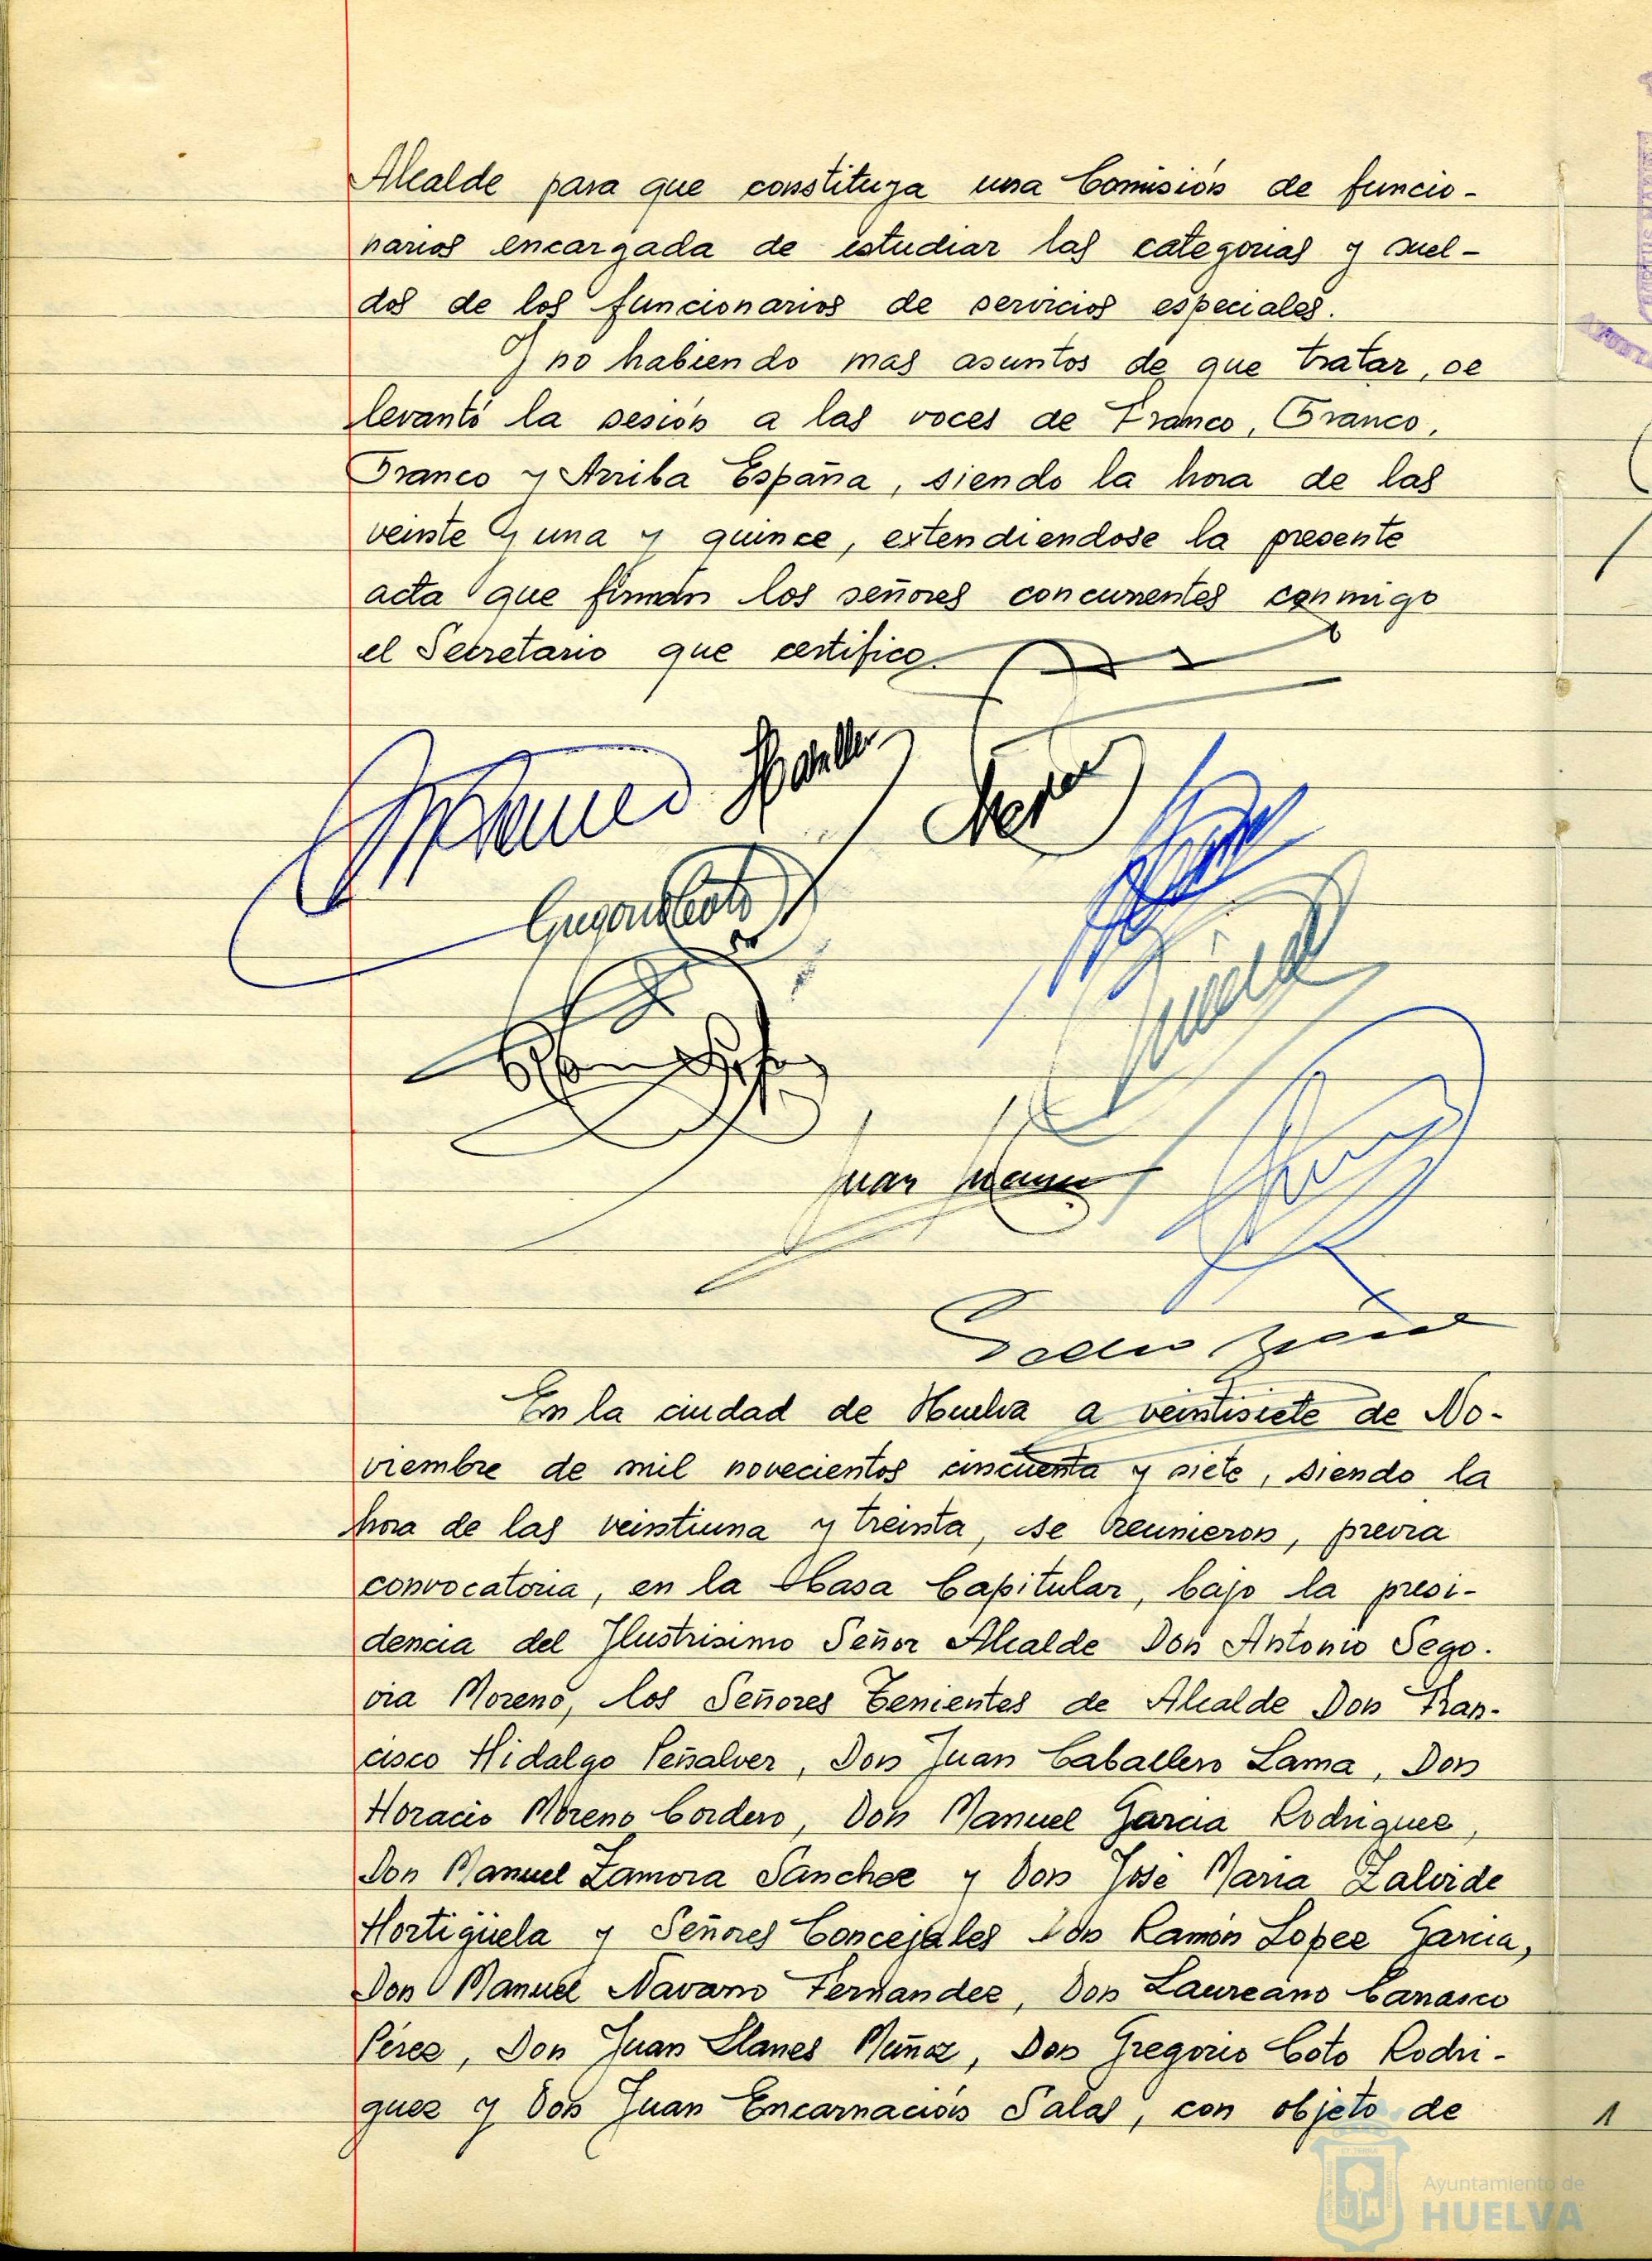 Alcalde para que constituya una Comisión de funcio-
narios encargada de estudiar las categorias y suel-
dos de los funcionarios de servicios especiales.
Y no habiendo mas asuntos de que tratar, se
levantó la sesión a las voces de Franco, Franco,
Franco y Arriba España, siendo la hora de las
veinte y una y quince, extendiendose la presente
acta que firman los señores concurrentes conmigo
el Secretario que certifico.
Gregorio Coto
Juan Llanes
En la ciudad de Huelva a veintisiete de No-
viembre de mil novecientos cincuenta y siete, siendo la
hora de las veintiuna y treinta, se reunieron, previa
convocatoria, en la Casa Capitular, bajo la presi-
dencia del Ilustrisimo Señor Alcalde Don Antonio Sego-
via Moreno, los Señores Tenientes de Alcalde Don Fran-
cisco Hidalgo Peñalver, Don Juan Caballero Lama, Don
Horacio Moreno Cordero, Don Manuel Garcia Rodriguez,
Don Manuel Zamora Sanchez y Don José Maria Zalvide
Hortigüela y Señores Concejales Don Ramón Lopez Garcia,
Don Manuel Navarro Fernandez, Don Laureano Carrasco
Pérez, Don Juan Llanes Muñoz, Don Gregorio Coto Rodri-
guez y Don Juan Encarnación Salas, con objeto de
1
Ayuntamiento de
HUELVA